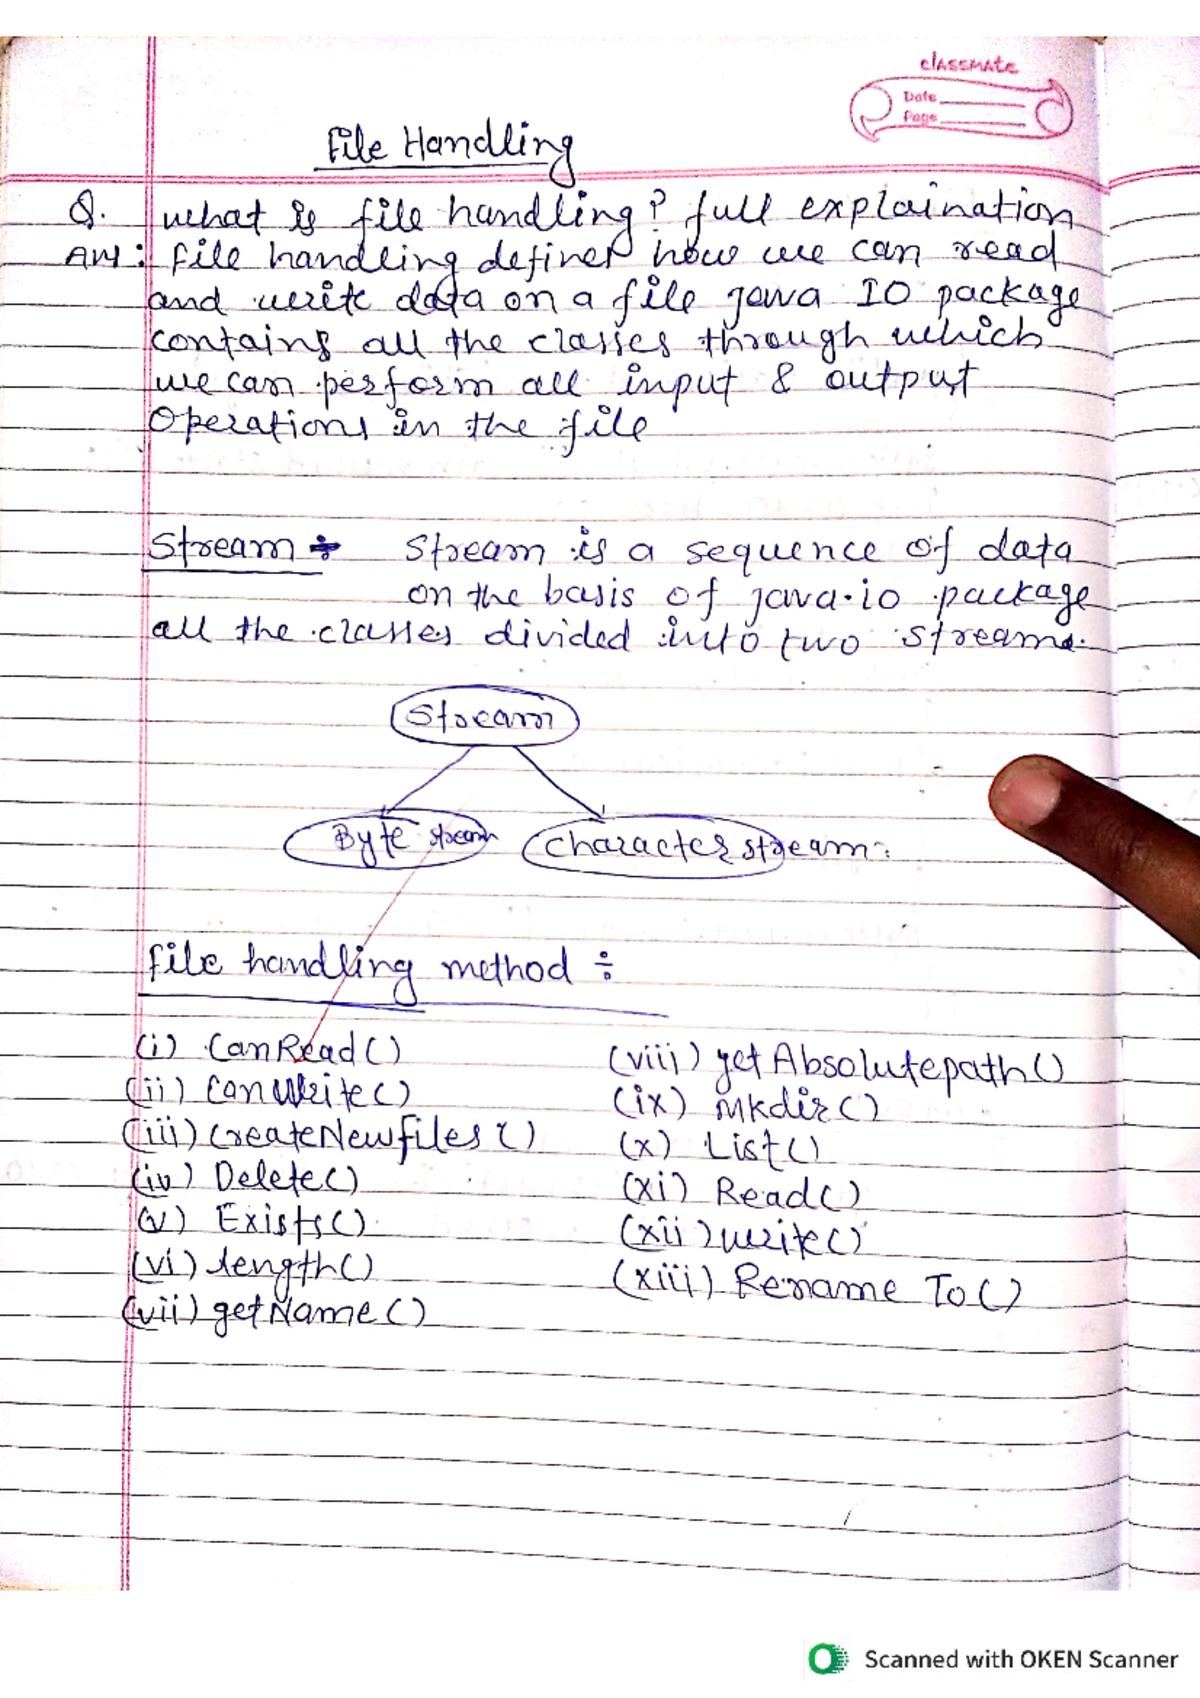 classmate
Date
Page
File Handling
Q. what is file handling? full explaination
Ans: file handling defines how we can read
and write data on a file java IO package
contains all the classes through which
we can perform all input & output
Operations in the file
Stream ÷ Stream is a sequence of data
on the basis of java.io package
all the classes divided into two streams.
Stream
Byte stream
Character stream
file handling method ÷
(i) CanRead()
(ii) CanWrite()
(iii) CreateNewfiles()
(iv) Delete()
(v) Exists()
(vi) length()
(vii) getName()
(viii) getAbsolutepath()
(ix) Mkdir()
(x) List()
(xi) Read()
(xii) write()
(xiii) Rename To()
Scanned with OKEN Scanner